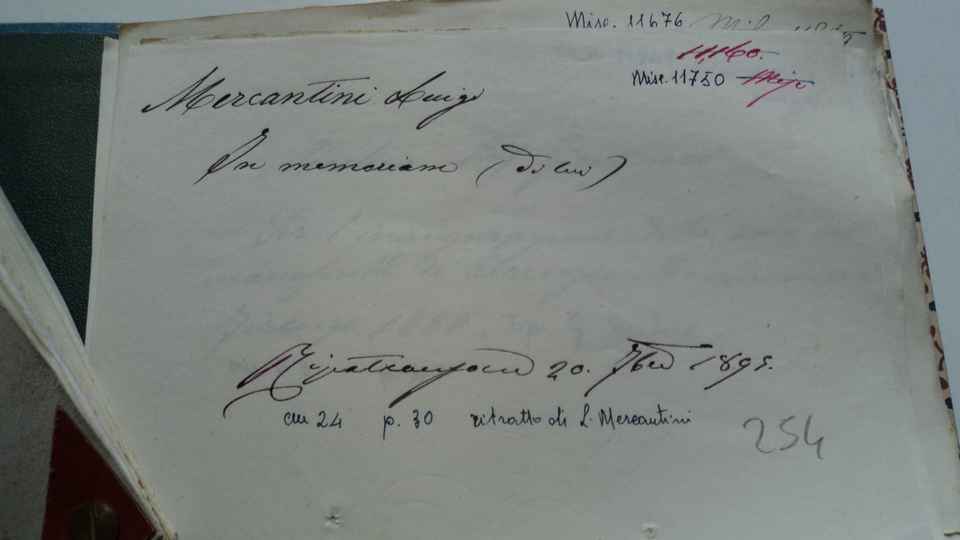 Misc. 11676
11160.
Misc. 11750
Mercantini Luigi
In memoriam (di lui)
Ripatransone 20. 7bre 1895.
cm 24 p. 30 ritratto di L. Mercantini
254